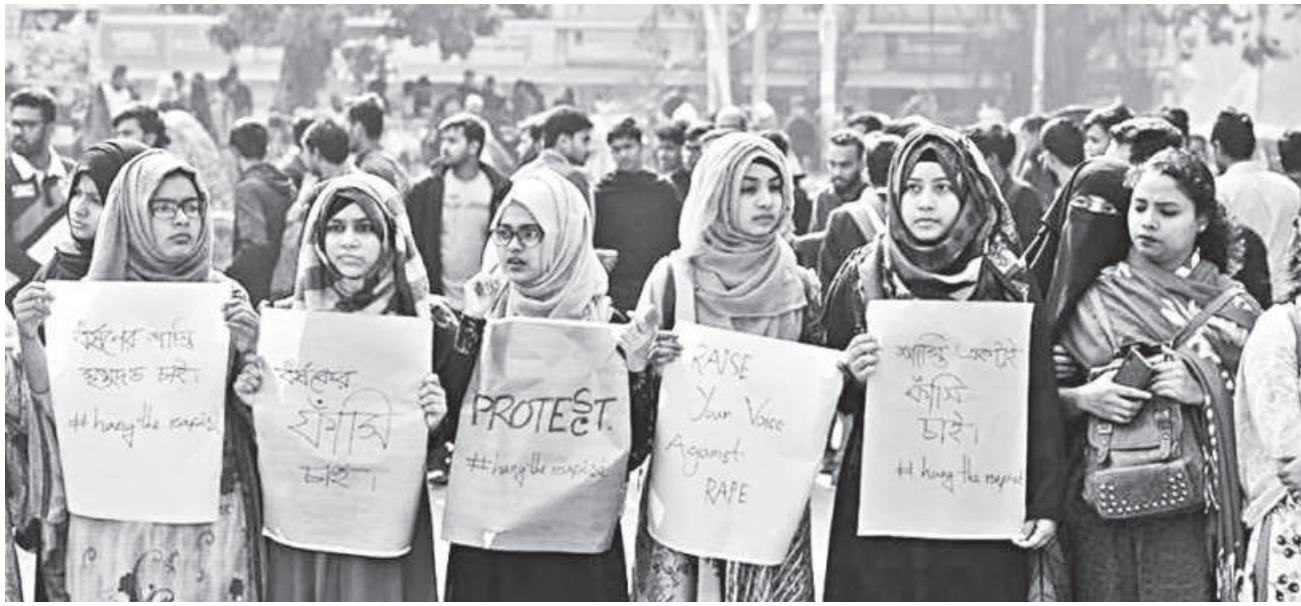 ধর্ষনের শাস্তি
মৃত্যুদন্ড চাই।
#hang the rapist
ধর্ষকের
ফাঁসি
চাই।
PROTESCT.
#hang the rapist
RAISE
Your Voice
Against
RAPE
শাস্তি একটাই
ফাঁসি
চাই।
# hang the rapist